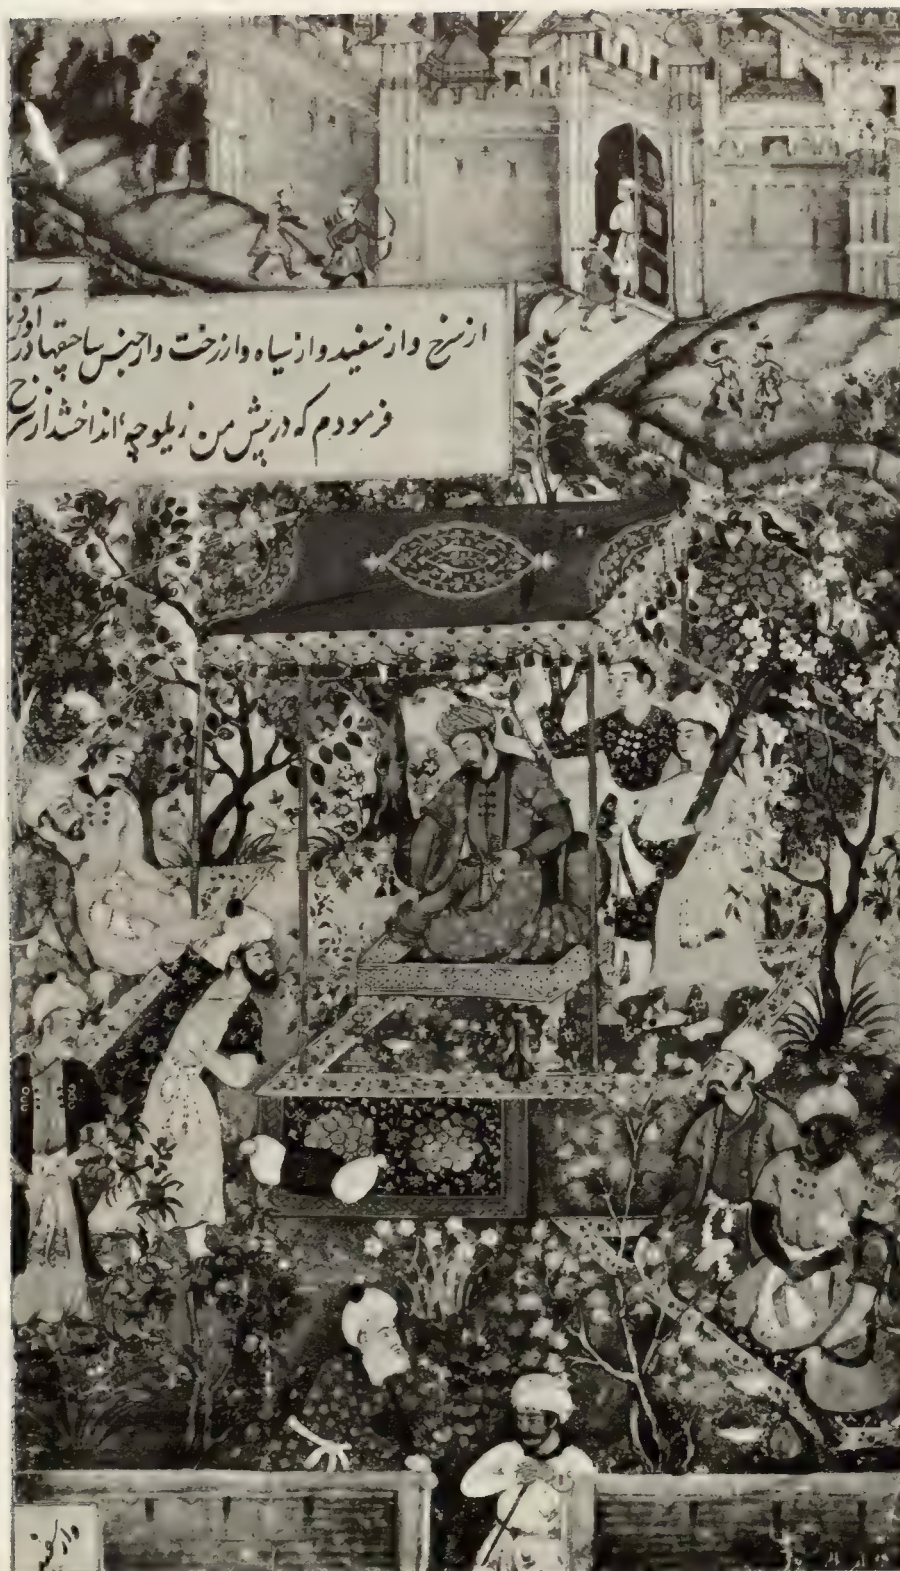 از سرخ و از سفید و از سیاه و از رخت و از جنس ساچقها
فرمودم که در پیش من زیلوچه انداختند از
واز سفید